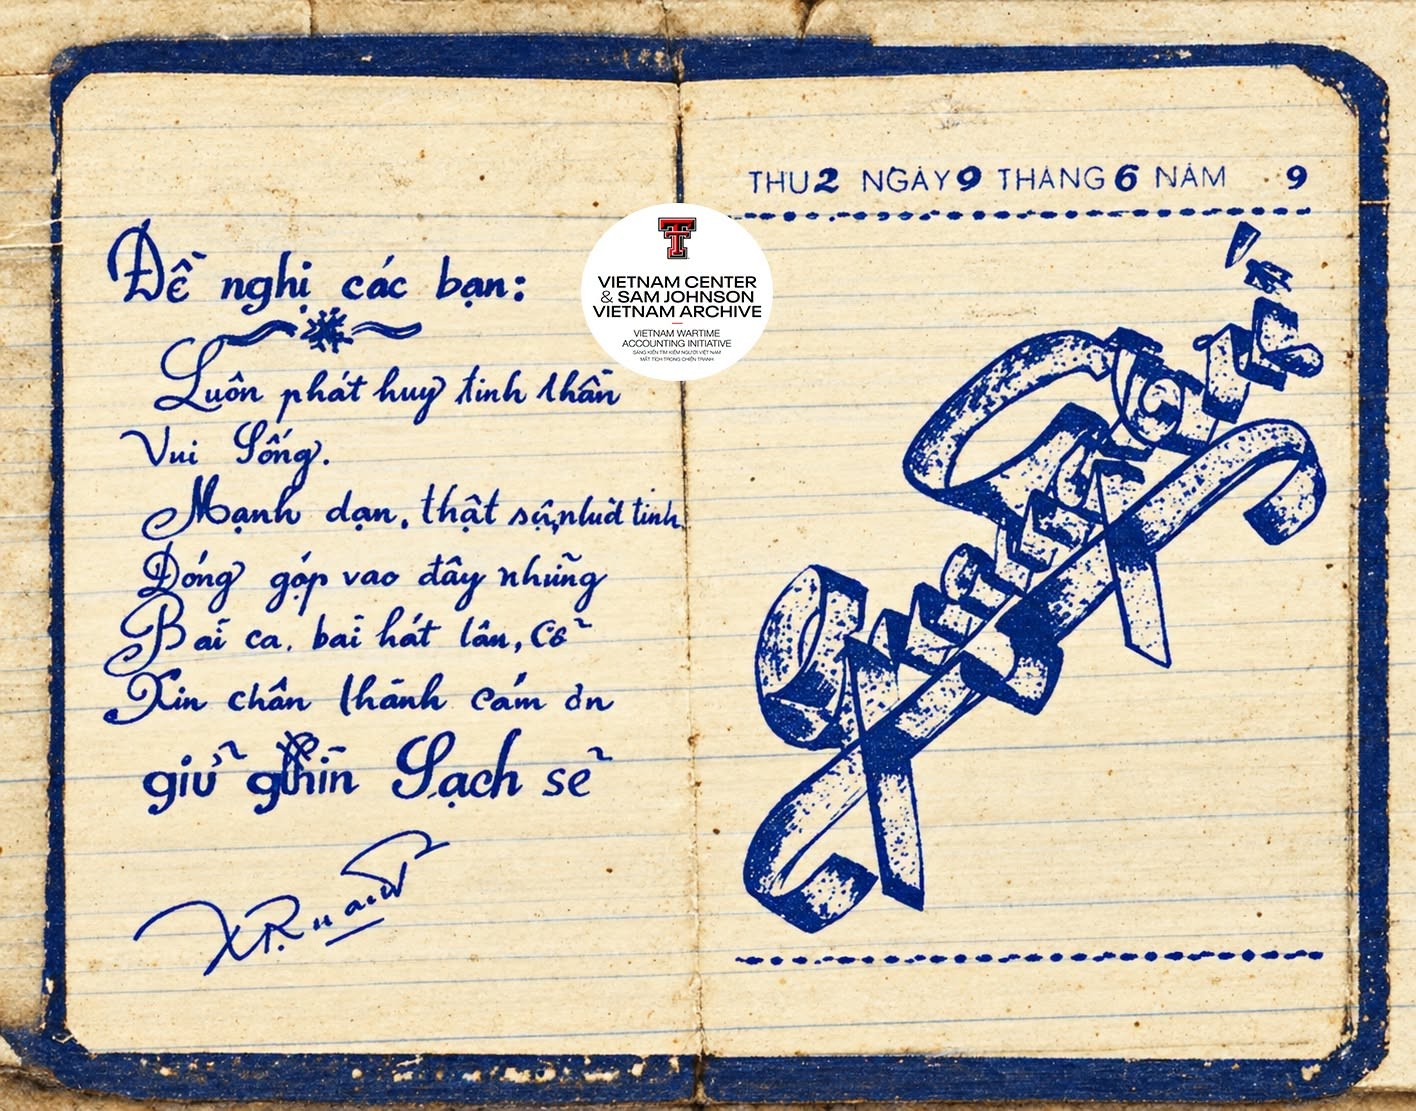 Đề nghị các bạn:
Luôn phát huy tinh thần
Vui Sống.
Mạnh dạn, thật sự, nhiệt tinh
Đóng góp vao đây những
Bai ca, bai hát lân, cỗ
Xin chân thành cám ơn
giữ ghin Sạch sẽ
VIETNAM CENTER
& SAM JOHNSON
VIETNAM ARCHIVE
VIETNAM WARTIME
ACCOUNTING INITIATIVE
SÁNG KIẾN TÌM KIẾM NGƯỜI VIỆT NAM
MẤT TÍCH TRONG CHIẾN TRANH
THU 2 NGÀY 9 THANG 6 NĂM 9